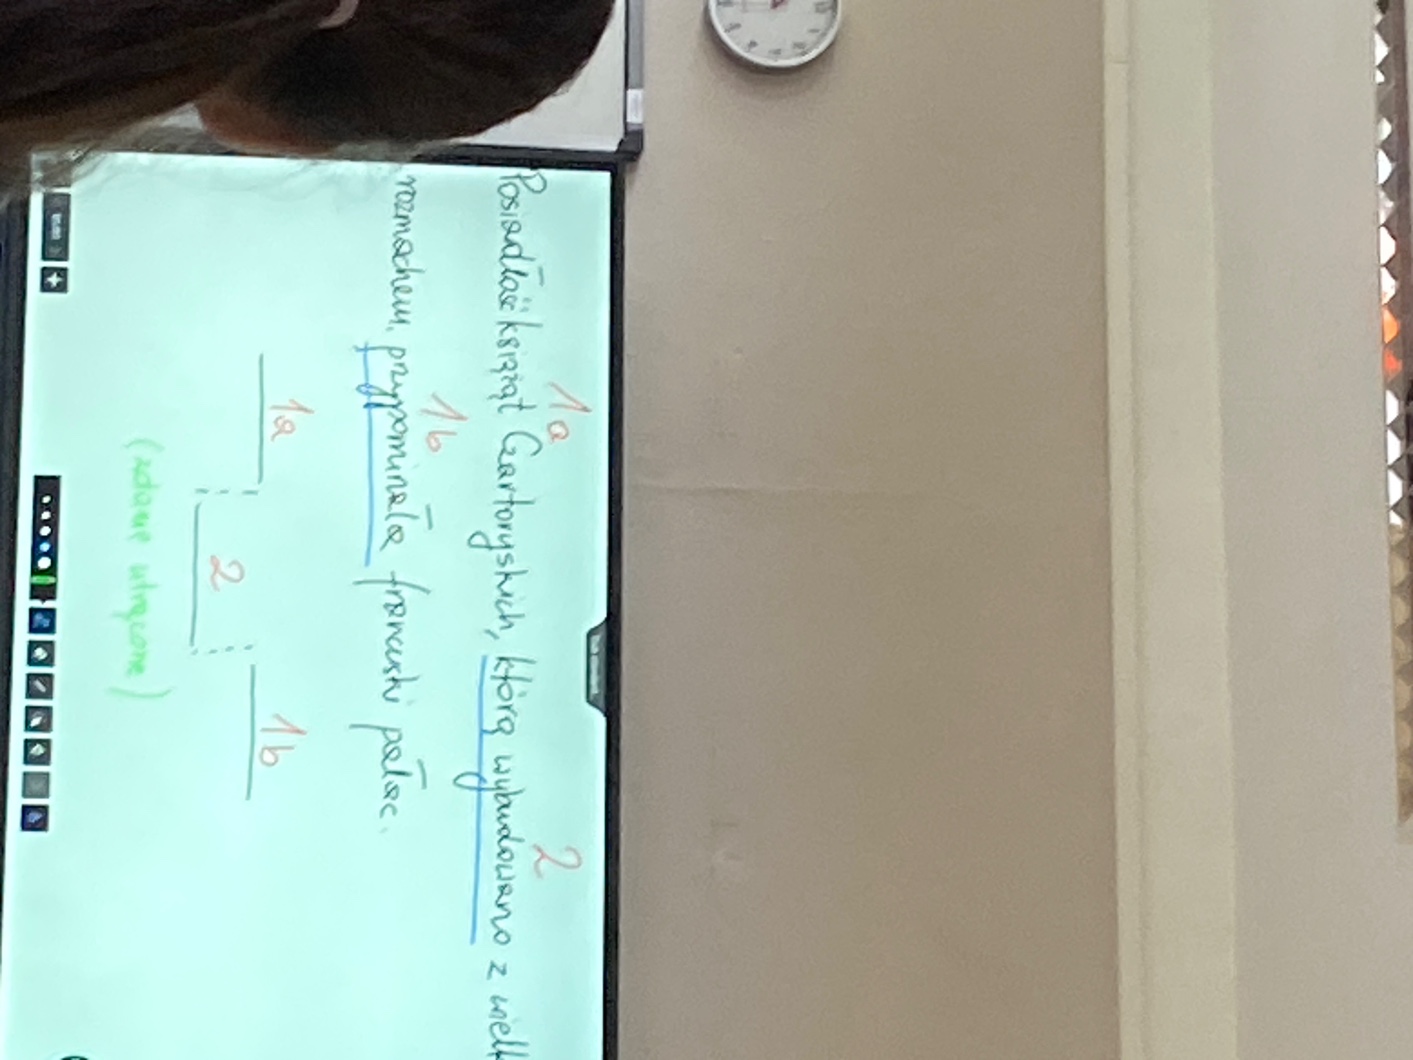 1a 2
Posiadłość książąt Czartoryskich, którą wybudowano z wielk
1b
rozmachem, przypominała francuski pałac.
1a 1b
2
(zdanie wtrącone)